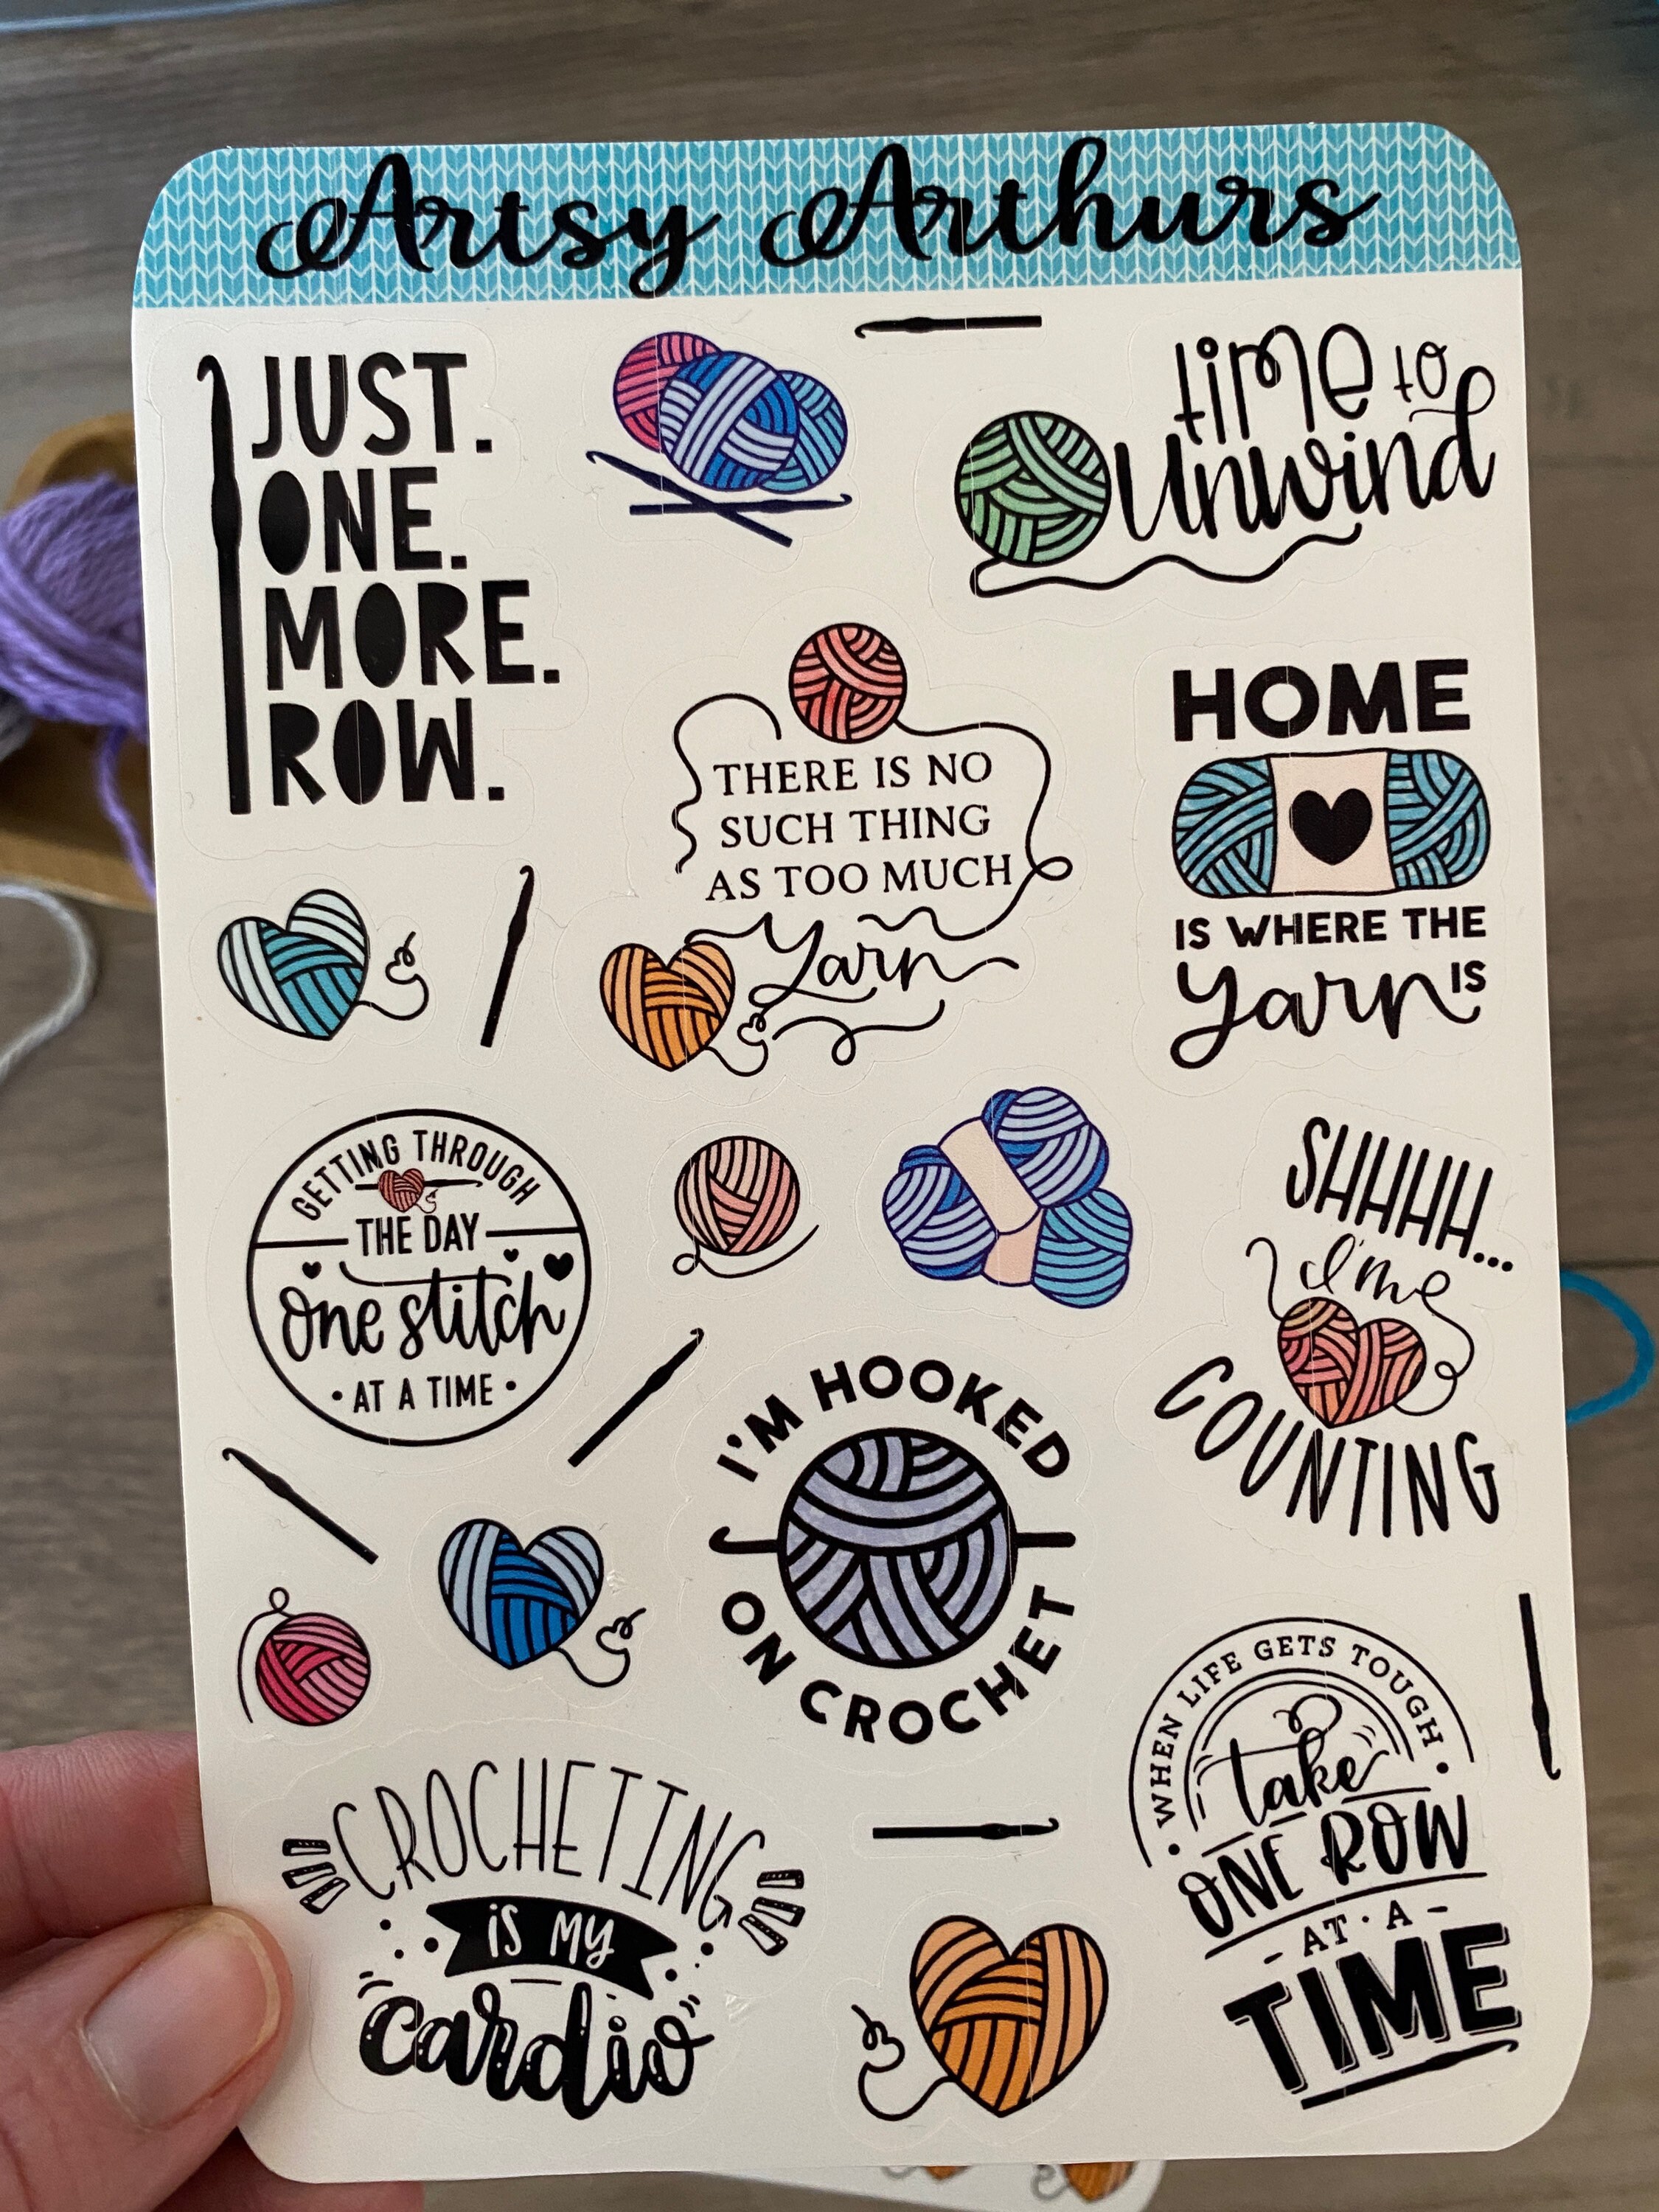 Artsy Arthurs
JUST.
ONE.
MORE.
ROW.
time to
unwind
THERE IS NO
SUCH THING
AS TOO MUCH
Yarn
HOME
IS WHERE THE
yarn IS
GETTING THROUGH
THE DAY
one stitch
• AT A TIME •
SHHHH...
I'm
COUNTING
I'M HOOKED
ON CROCHET
CROCHETING
is MY
cardio
• WHEN LIFE GETS TOUGH •
take
ONE ROW
- AT • A -
TIME